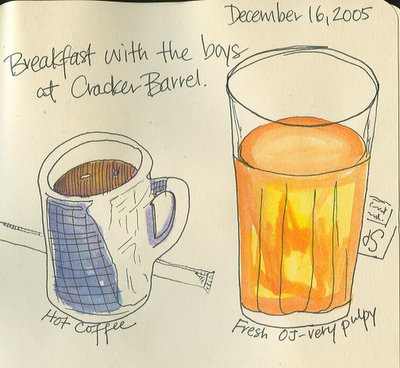 December 16, 2005
Breakfast with the boys
at Cracker Barrel.
Hot Coffee
Fresh OJ-very pulpy